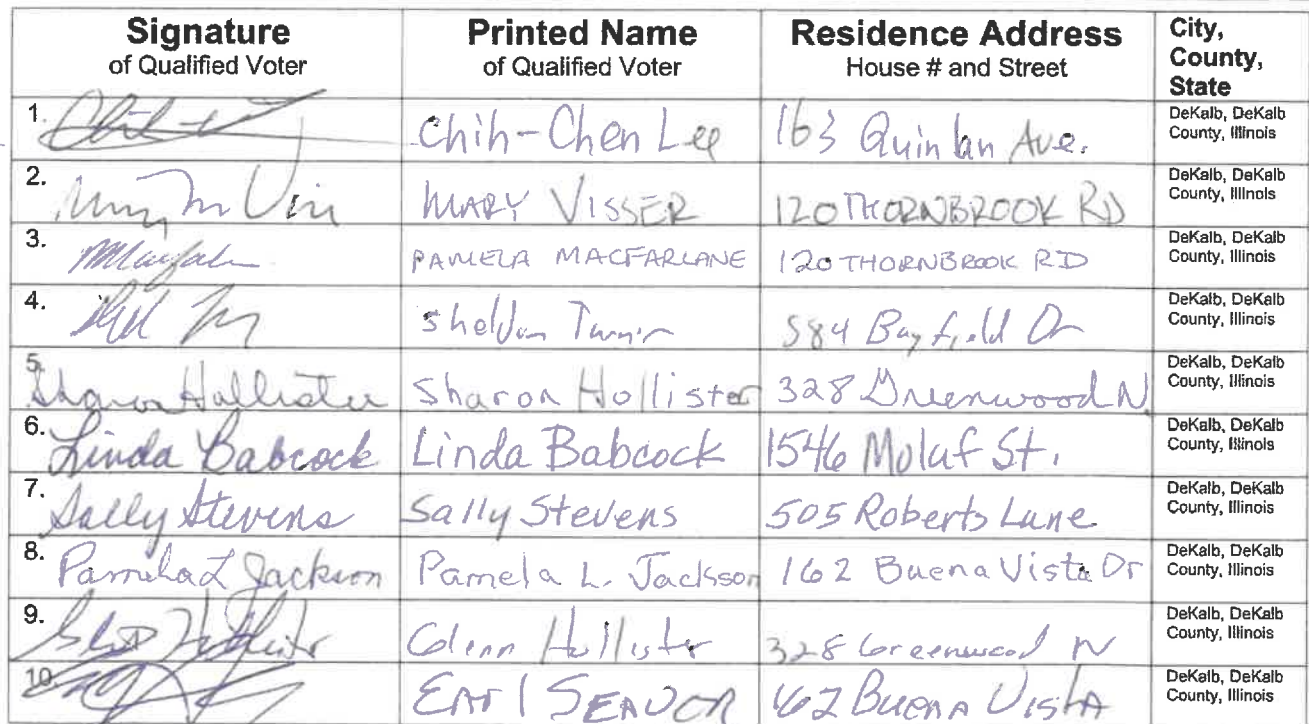 Signature Printed Name Residence Address City,
of Qualified Voter of Qualified Voter House # and Street County,
State
1. Chih-Chen Lee 163 Quinlan Ave. DeKalb, DeKalb
County, Illinois
2. MARY VISSER 120 THORNBROOK RD DeKalb, DeKalb
County, Illinois
3. PAMELA MACFARLANE 120 THORNBROOK RD DeKalb, DeKalb
County, Illinois
4. Sheldon Turner 584 Bayfield Dr DeKalb, DeKalb
County, Illinois
5. Sharon Hollister Sharon Hollister 328 Greenwood N DeKalb, DeKalb
County, Illinois
6. Linda Babcock Linda Babcock 1546 Moluf St. DeKalb, DeKalb
County, Illinois
7. Sally Stevens Sally Stevens 505 Roberts Lane DeKalb, DeKalb
County, Illinois
8. Pamela L Jackson Pamela L. Jackson 162 Buena Vista Dr DeKalb, DeKalb
County, Illinois
9. Glenn Hollister 328 Greenwood N DeKalb, DeKalb
County, Illinois
10. EARl SEAVOR 162 BUENA VISTA DeKalb, DeKalb
County, Illinois